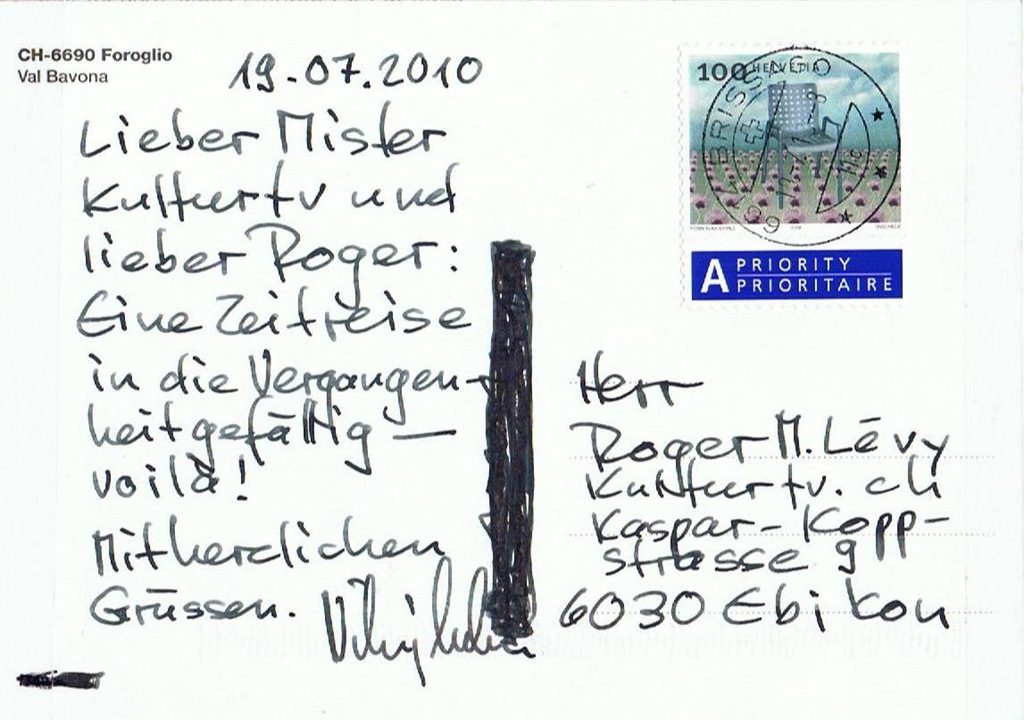 CH-6690 Foroglio
Val Bavona
19.07.2010
Lieber Mister
Kulturtv und
lieber Roger:
Eine Zeitreise
in die Vergangen-
heit gefällig —
voilà!
Mit herzlichen
Grüssen.
100 HELVETIA
BRISSAGO
A PRIORITY
PRIORITAIRE
Herr
Roger M. Lévy
Kulturtv.ch
Kaspar-Kopp-
strasse 9
6030 Ebikon